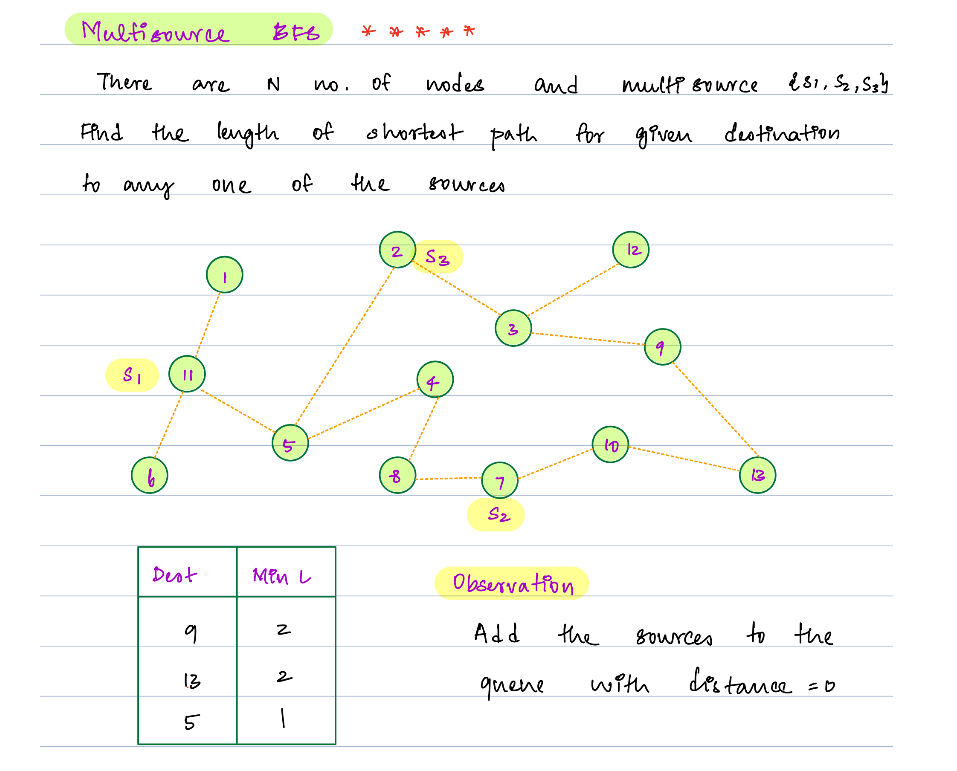 Multisource BFS * * * * *
There are N no. of nodes and multi source {S1, S2, S3}
Find the length of shortest path for given destination
to any one of the sources
2 S3 12
1
3
9
S1 11 4
5 10
6 8 7 13
S2
Dest Min L
9 2
13 2
5 1
Observation
Add the sources to the
queue with distance = 0